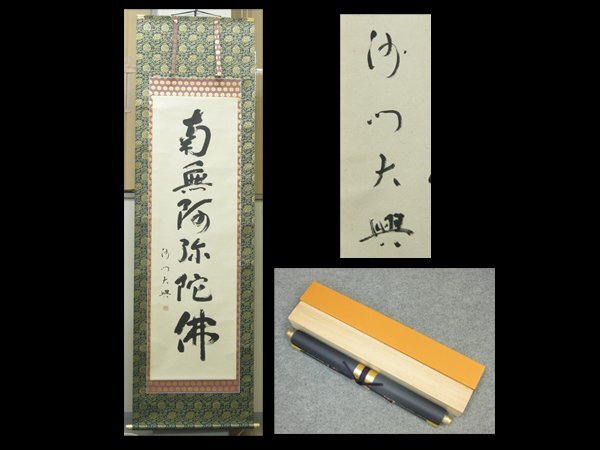 南無阿弥陀佛
沙門大興
沙門大興